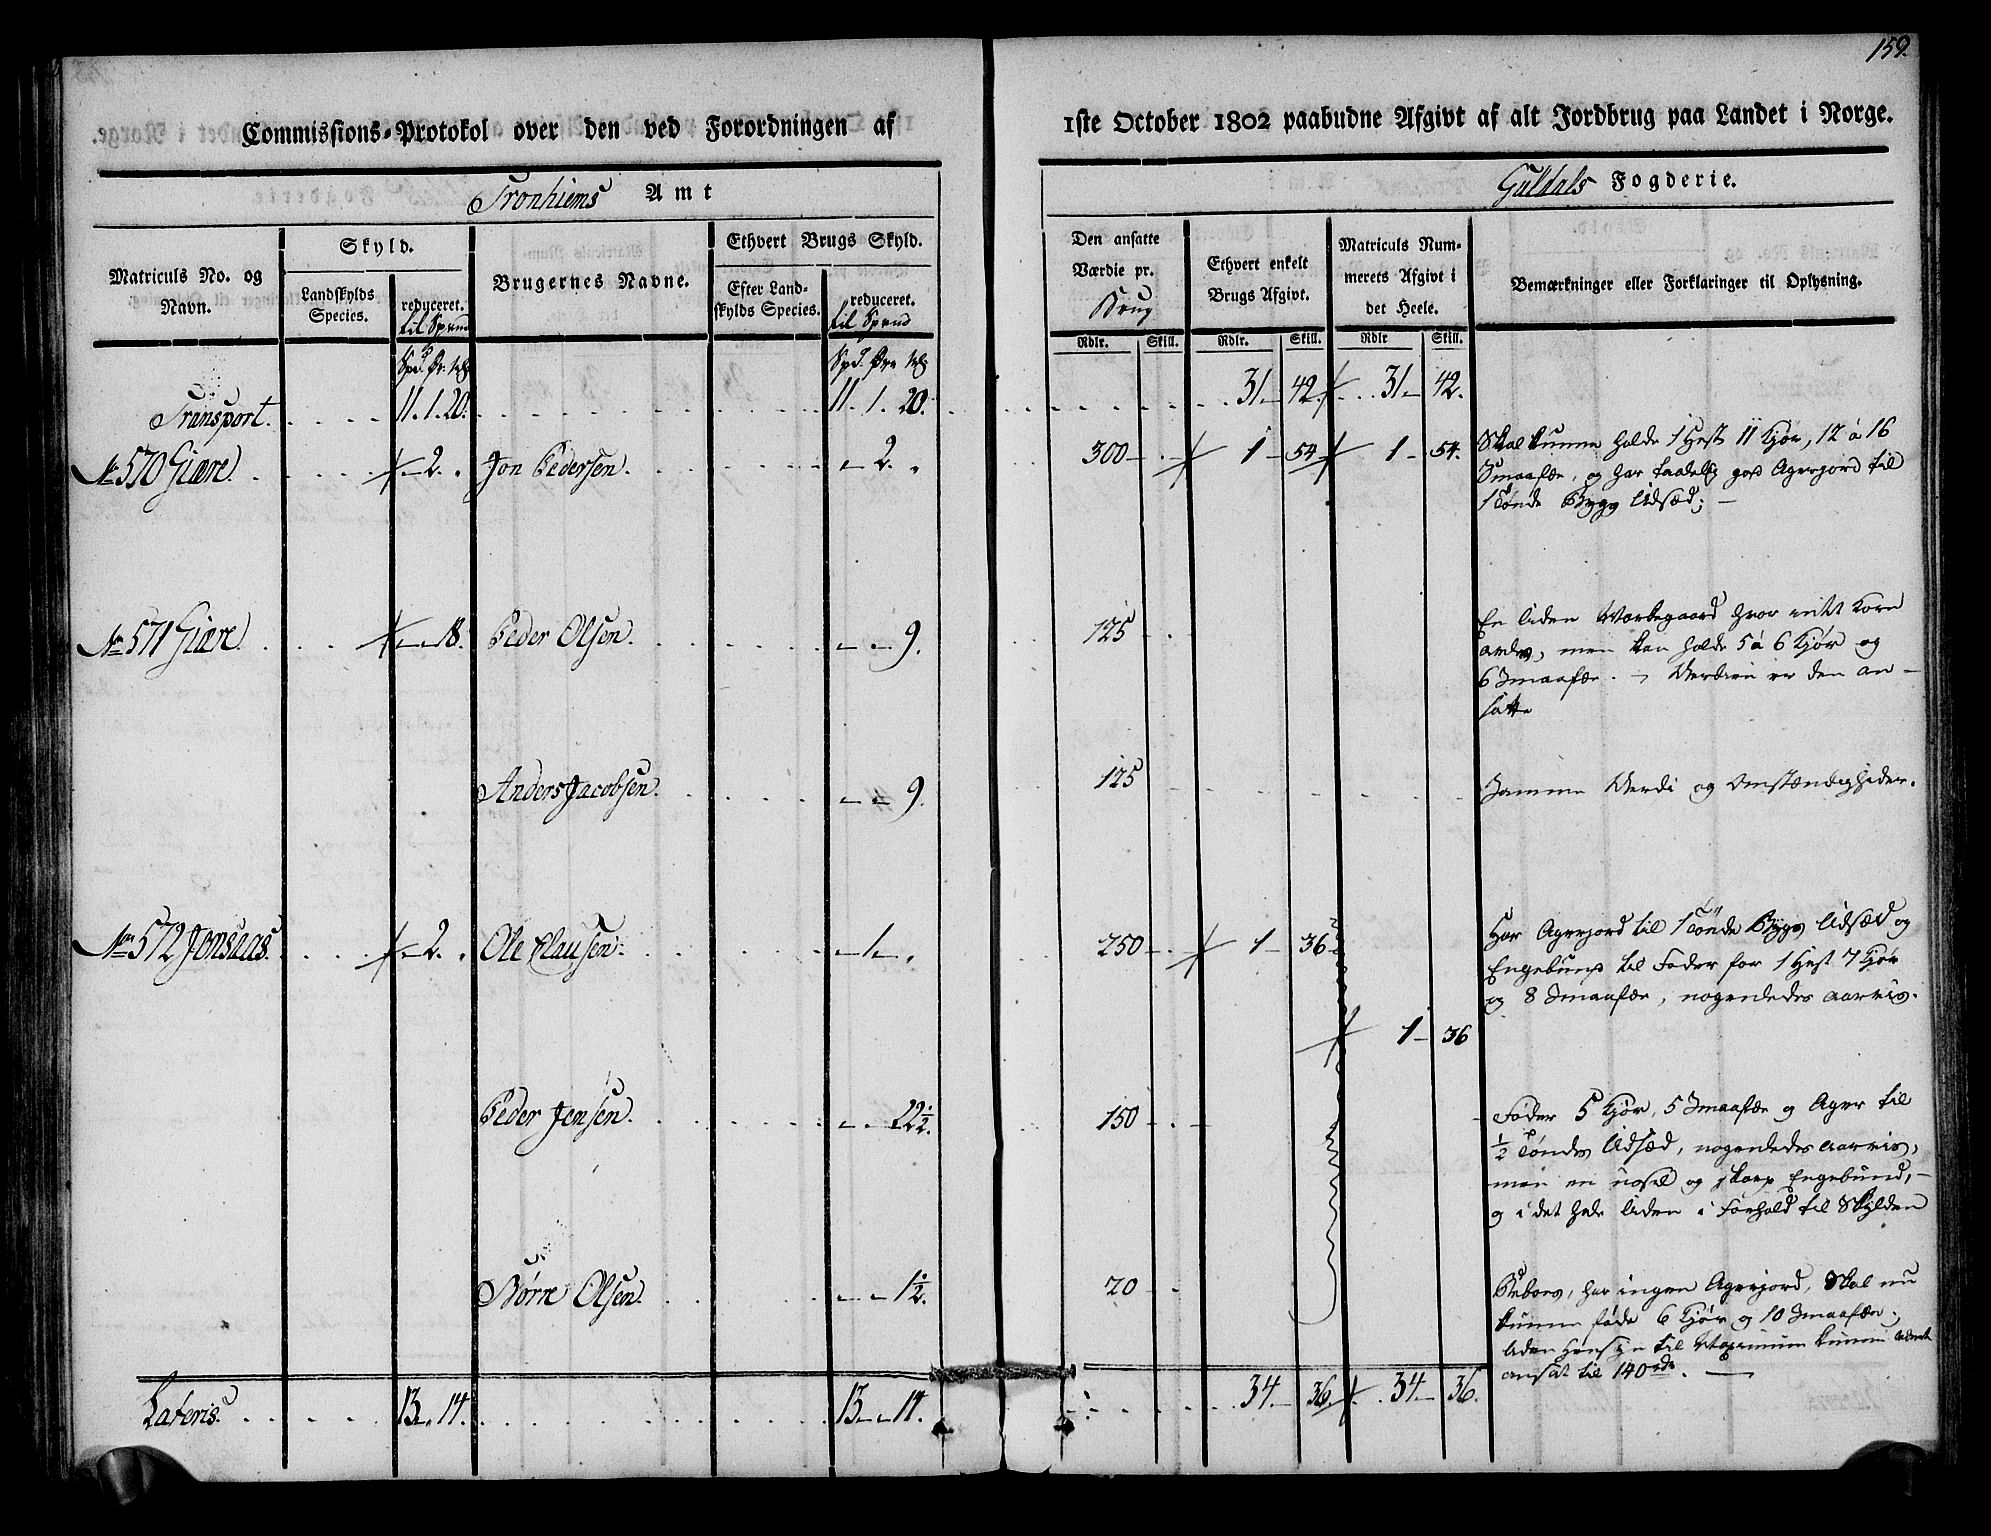 159.
Commissions-Protokol over den ved Forordningen af 1ste October 1802 paabudne Afgivt af alt Jordbrug paa Landet i Norge.
Tronhiems Amt
Guldals Fogderie.
Matriculs No. og Navn.
Skyld.
Landskylds Species.
reduceret. til Spend
Brugernes Navne.
Ethvert Brugs Skyld.
Efter Landskylds Species.
reduceret. til Spend
Den ansatte Værdie pr. Brug
Rdlr. Skill.
Ethvert enkelt Brugs Afgivt.
Rdlr. Skill.
Matriculs Nummerets Afgivt i det Heele.
Rdlr Skill.
Bemærkninger eller Forklaringer til Oplysning.
Transport. 11. 1. 20. 11. 1. 20. 31 42 31 42.
No 570 Giære. 2. Jon Pedersen. 2. 300 1 54 1 54.
Skal kunne holde 1 Hest 11 Kjør, 12 à 16
Smaafæ, og har taadelig god Agerjord til
1 Tønde Bygg Udsæd; —
No 571 Giære. 18. Peder Olsen. 9. 125
En liden Markegaard hvor intet Korn
avles, men kan holde 5 à 6 Kjør og
6 Smaafæ. — Verdien er den an-
satte
Anders Jacobsen. 9. 125
Samme Verdi og Omstændigheder.
No 572 Jonsaas. 2. Ole Clausen. 1 250 1 36
Har Agerjord til 1 Tønde Bygs Udsæd og
Engebund til Foder for 1 Hest 7 Kjør
og 8 Smaafæ, nogenledes aarvis.
1 36
Peder Jensen. 22½. 150
Føder 5 Kjør, 5 Smaafæ og Ager til
½ Tøndes Udsæd, nogenledes aarvis,
men en ussel og skarp Engebund,
og i det hele liden i Forhold til Skylden
Børre Olsen. 1½. 20
Beboes, har ingen Agerjord, Skal nu
kunne føde 6 Kjør og 10 Smaafæe;
uden Hensyn til Maximum kunne
ansat til 140 rdr. —
Lateris. 13 14. 13 14. 34 36 34 36.